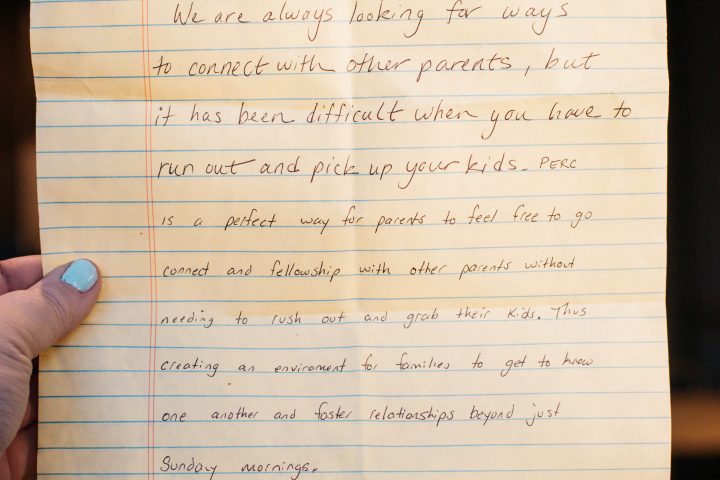 We are always looking for ways
to connect with other parents, but
it has been difficult when you have to
run out and pick up your kids. PERC
is a perfect way for parents to feel free to go
connect and fellowship with other parents without
needing to rush out and grab their kids. Thus
creating an enviroment for families to get to know
one another and foster relationships beyond just
Sunday mornings.